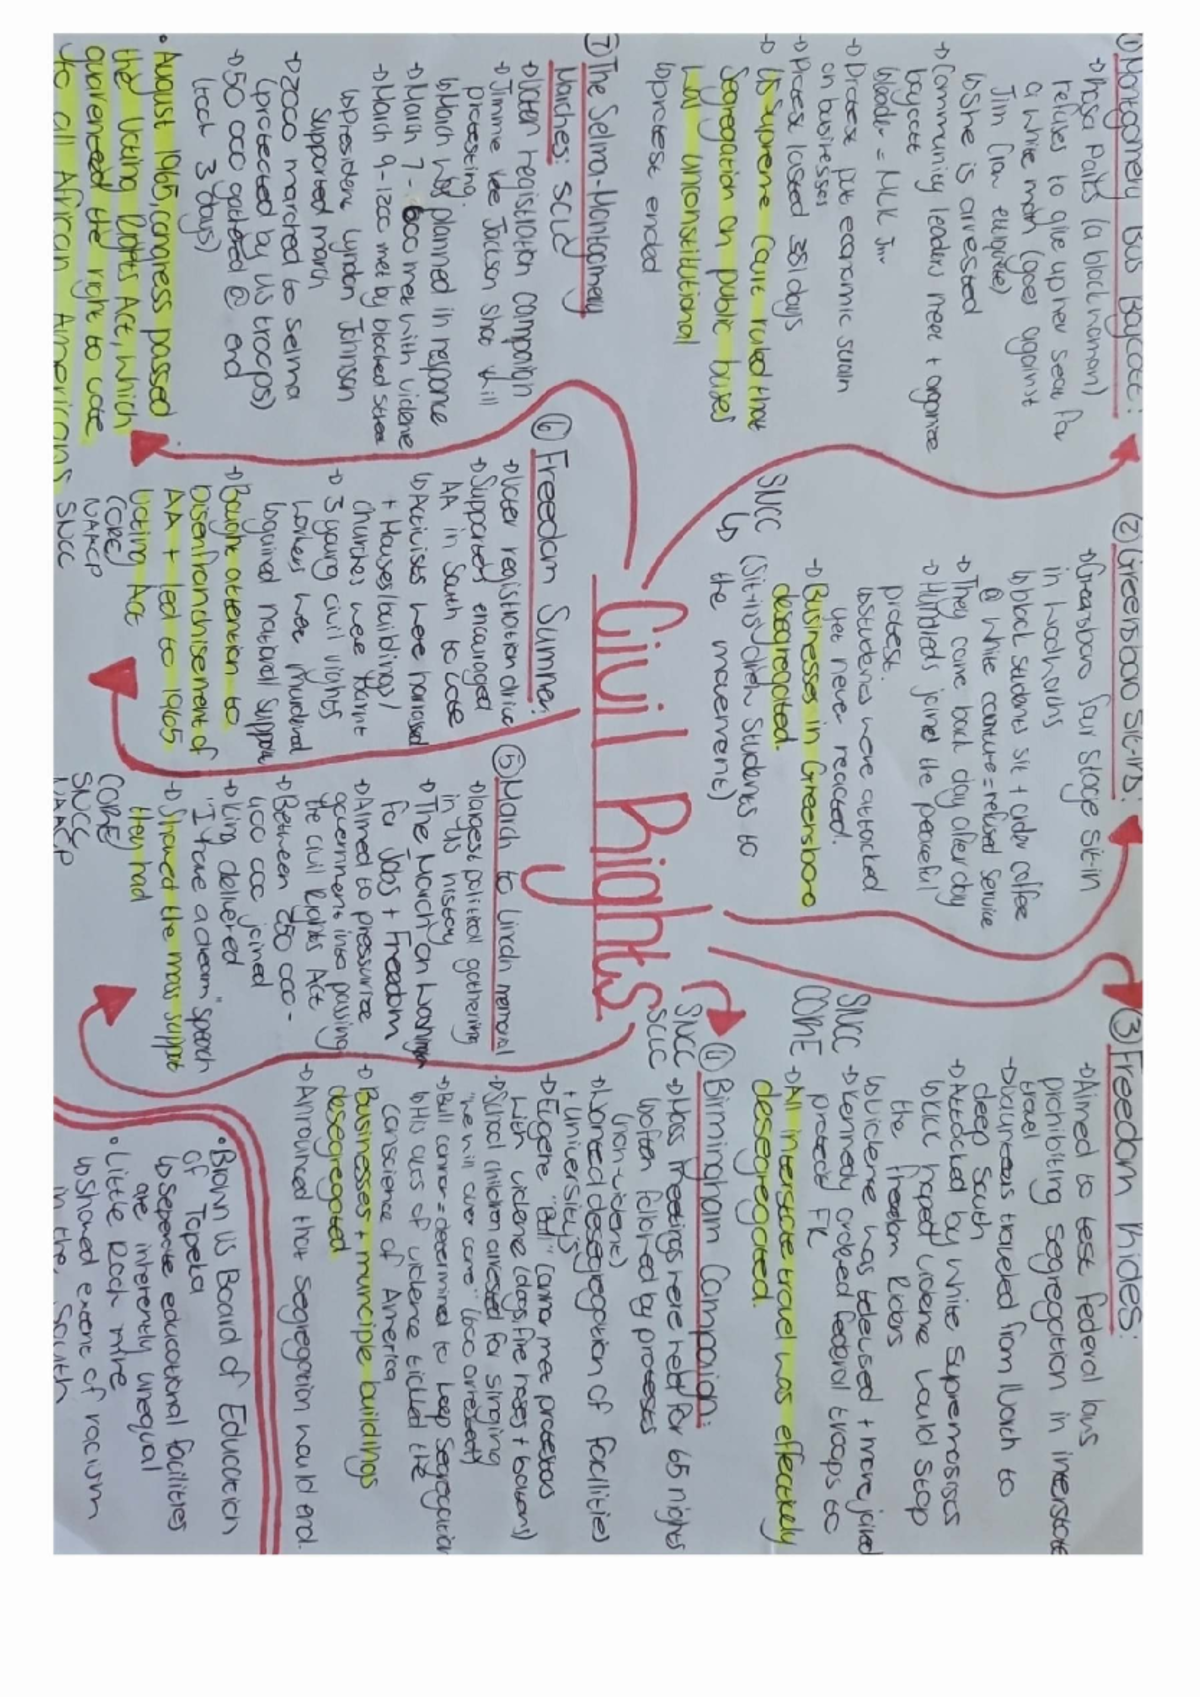 Civil Rights
① Montgomery Bus Boycott:
→ Rosa Parks (a black woman)
refuses to give up her seat for
a white man (goes against
Jim Crow etiquette)
↳ She is arrested
→ Community leaders meet + organize
boycott
↳ leader = MLK Jnr
→ Protest put economic strain
on businesses
→ Protest lasted 381 days
→ US Supreme Court ruled that
Segregation on public buses
was unconstitutional
↳ protest ended
② Greensboro Sit-ins:
→ Greensboro four stage sit-in
in Woolworths
↳ black students sit + order coffee
@ white counture = refused service
→ They came back day after day
→ Hundreds joined the peaceful
protest.
↳ students were attacked
yet never reacted.
→ Businesses in Greensboro
desegregated.
SNCC
↳ (Sit-ins drew students to
the movement)
③ Freedom Rides:
→ Aimed to test federal laws
prohibiting segregation in interstate
travel
→ Volunteers traveled from North to
deep South
→ Attacked by white supremacists
↳ KKK hoped violence would stop
the freedom Riders
↳ violence was televised + more joined
→ Kennedy ordered federal troops to
protect FR
→ All interstate travel was effectively
desegregated.
SNCC
CORE
④ Birmingham Campaign:
→ Mass meetings were held for 65 nights
↳ often followed by protests
(non-violent)
→ Wanted desegregation of facilities
+ University's
→ Eugene "Bull" Connor met protestors
with violence (dogs, fire hoses + batons)
→ School children arrested for singing
"we will over come" (600 arrested)
→ Bull connor = determined to keep Segregation
↳ His acts of violence tickled the
conscience of America
→ Businesses + municiple buildings
desegregated
→ Announced that segregation would end.
SNCC
SCLC
⑤ March to Lincoln memorial
→ largest political gathering
in US history
→ The March on Washington
for Jobs + Freedom
→ Aimed to pressurize
government into passing
the civil Rights Act
→ Between 250 000 -
400 000 joined
→ King delivered
"I have a dream" speech
→ Showed the mass support
they had
CORE
SNCC
NAACP
⑥ Freedom Summer:
→ Voter registration drive
→ Supporters encouraged
AA in South to vote
↳ Activists were harrased
+ Houses/buildings/
churches were burnt
→ 3 young civil rights
workers were murdered
↳ gained national support
→ Bought attention to
Disenfranchisement of
AA + led to 1965
Voting Act
CORE
NAACP
SNCC
⑦ The Selma-Montgomery
Marches: SCLC
→ Voter registration campaign
→ Jimmie Lee Jackson shot + kill
protesting.
↳ March was planned in responce
→ March 7 - 600 met with violence
→ March 9 - 1200 met by blocked street
↳ President Lyndon Johnson
Supported march
→ 2000 marched to Selma
(protected by US troops)
→ 50 000 gathered @ end
(took 3 days)
• August 1965, congress passed
the Voting Rights Act, which
quarenteed the right to vote
to all African Americans
• Brown VS Board of Education
of Topeka
↳ seperate educational facilities
are inherently unequal
• Little Rock nine
↳ showed extent of racism
in the South